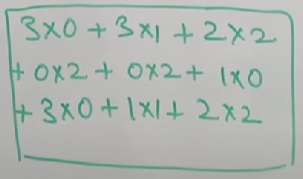 3×0 + 3×1 + 2×2
+ 0×2 + 0×2 + 1×0
+ 3×0 + 1×1 + 2×2